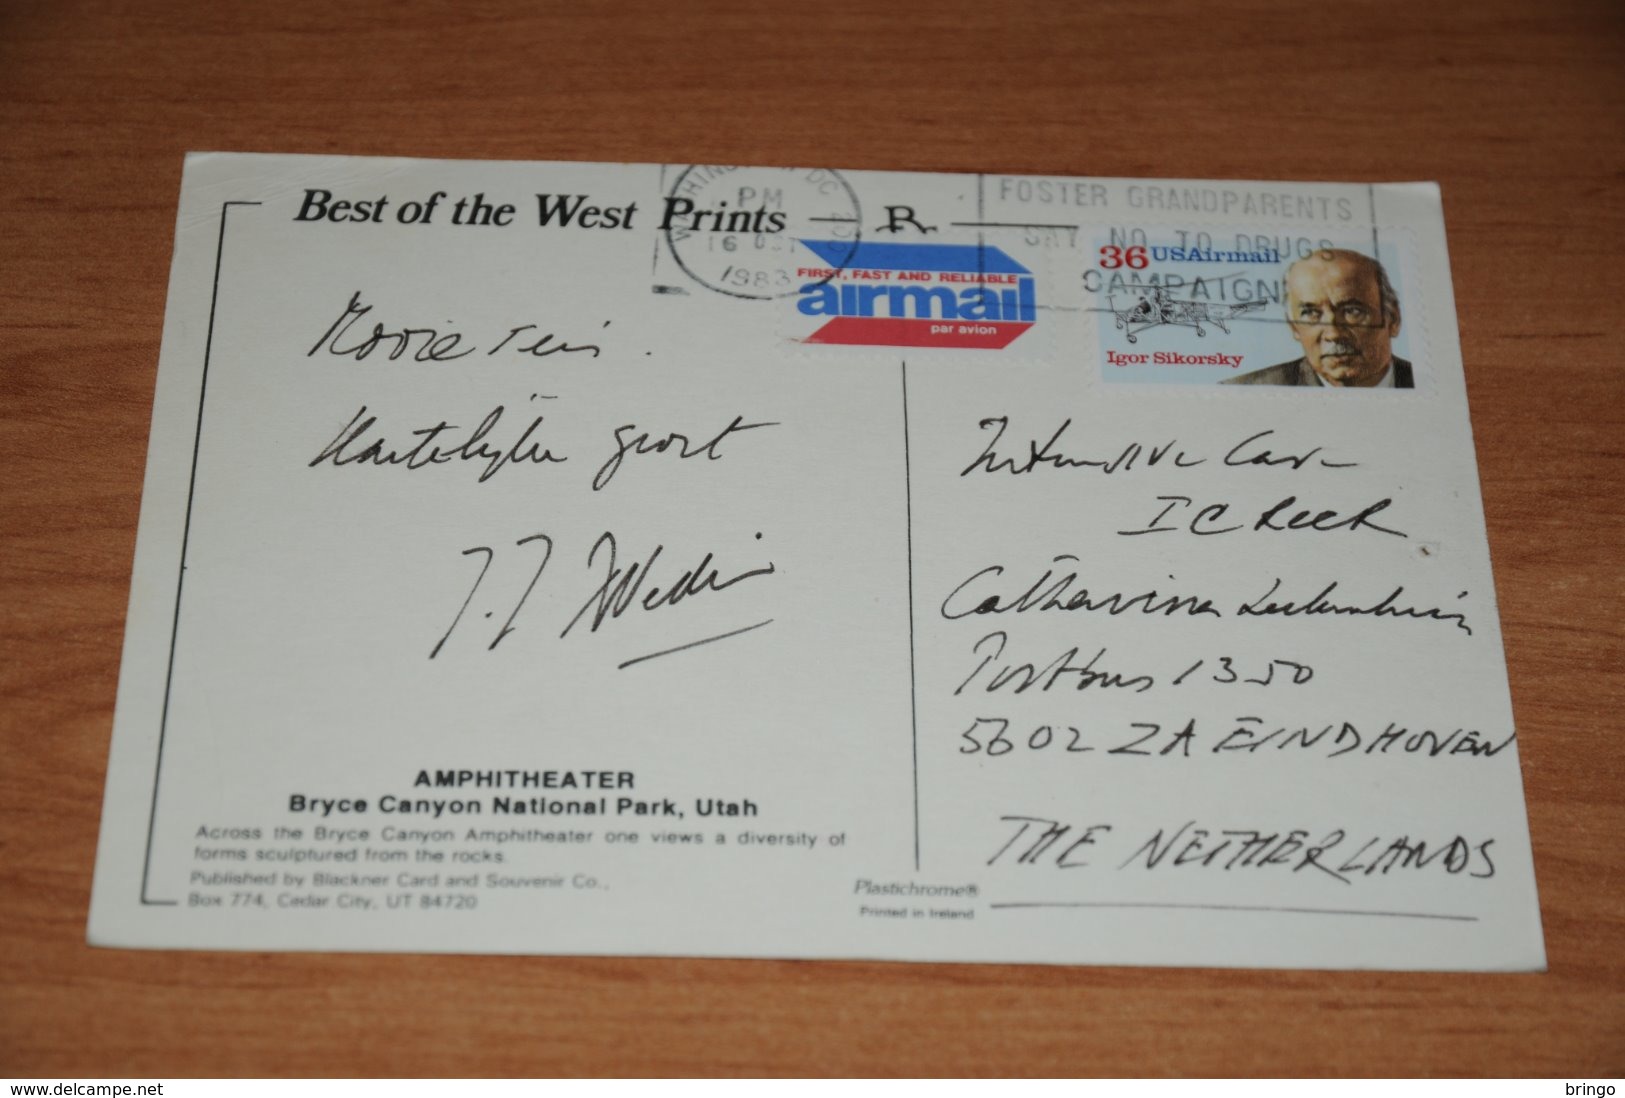 Best of the West Prints
WASHINGTON DC 200
PM
16 OCT
1983
FOSTER GRANDPARENTS
SAY NO TO DRUGS
CAMPAIGN
FIRST, FAST AND RELIABLE
airmail
par avion
36 USAirmail
Igor Sikorsky
Mooie reis.
Hartelijke groet
J. J.
Intensive Care
IC
Catharina
Postbus 1350
5602 ZA EINDHOVEN
THE NETHERLANDS
AMPHITHEATER
Bryce Canyon National Park, Utah
Across the Bryce Canyon Amphitheater one views a diversity of
forms sculptured from the rocks.
Published by Blackner Card and Souvenir Co.,
Box 774, Cedar City, UT 84720
Plastichrome®
Printed in Ireland
www.delcampe.net
bringo